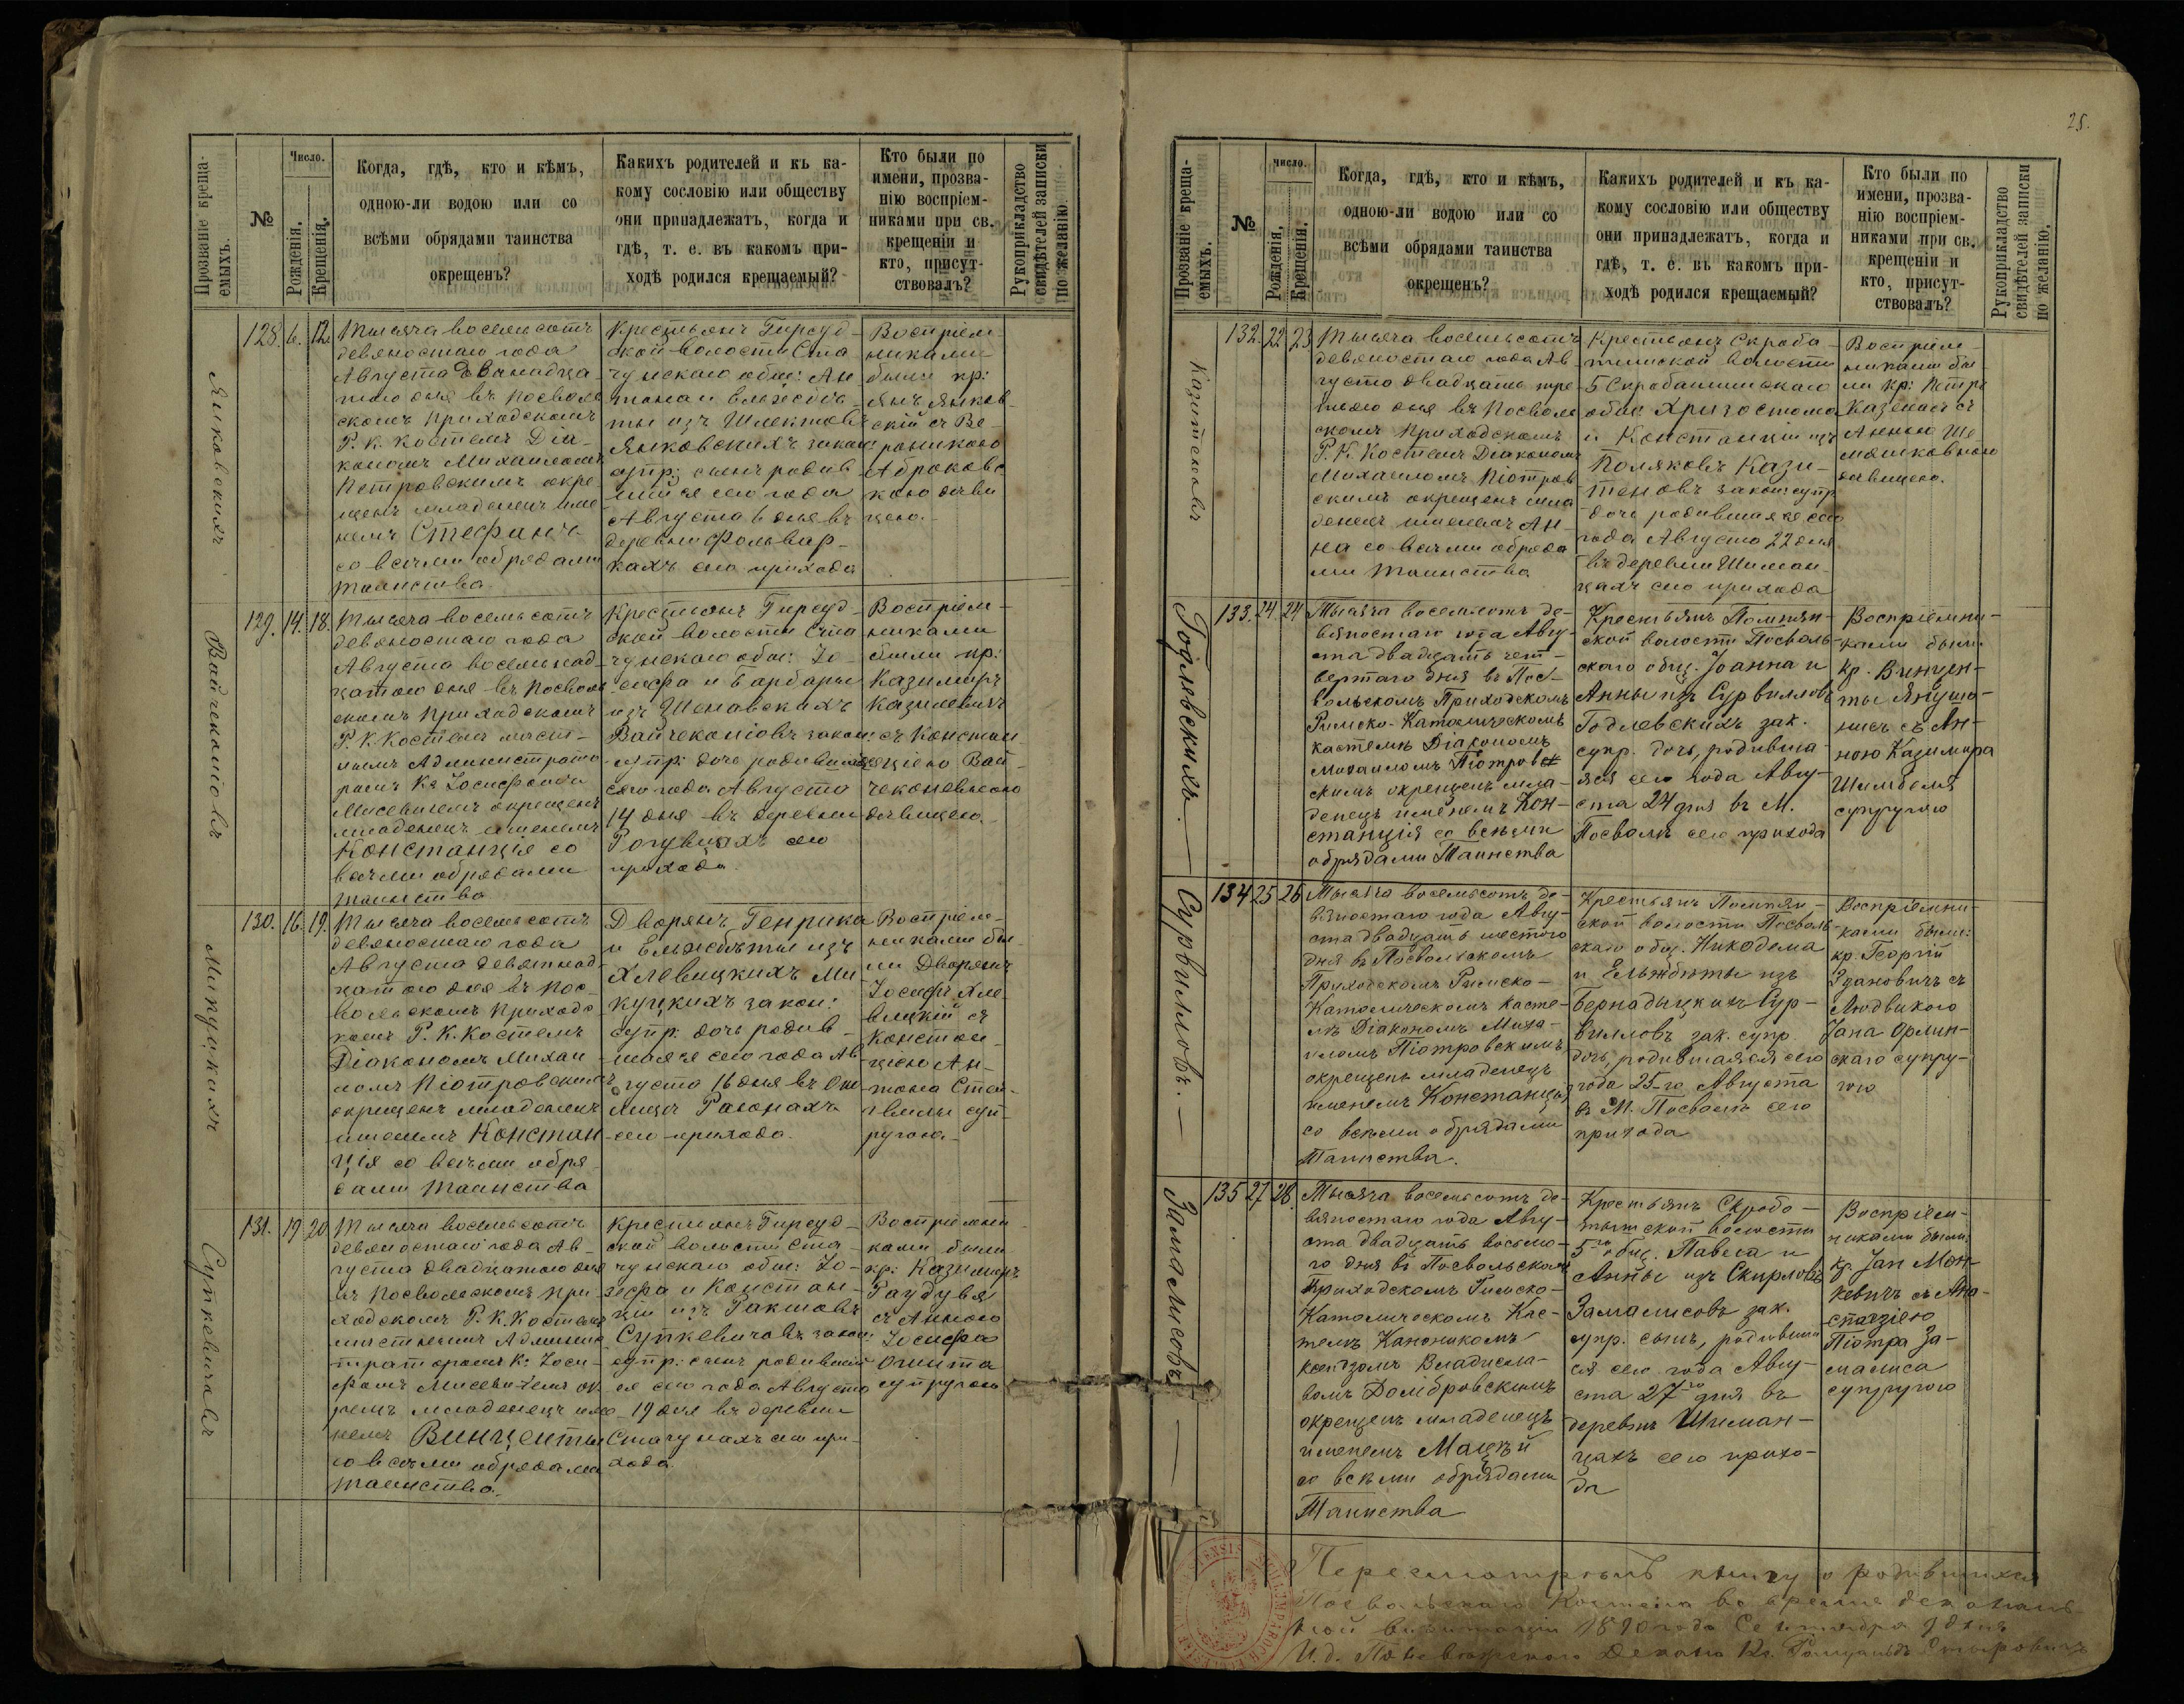 Прозваніе креща-
емыхъ.
№
Число.
Рожденія.
Крещенія.
Когда, гдѣ, кто и кѣмъ,
одною-ли водою или со
всѣми обрядами таинства
окрещенъ?
Какихъ родителей и къ ка-
кому сословію или обществу
они принадлежатъ, когда и
гдѣ, т. е. въ какомъ при-
ходѣ родился крещаемый?
Кто были по
имени, прозва-
нію воспріем-
никами при св.
крещеніи и
кто, присут-
ствовалъ?
Рукоприкладство
свидѣтелей записки
по желанію.
Янковскихъ
128. 6. 12.
Тысяча восемьсотъ
девяностаго года
Августа двенадца-
таго дня въ Посволь
скомъ Приходскомъ
Р. К. Костелѣ Діа-
кономъ Михаиломъ
Петровскимъ окре-
щенъ младенецъ име
немъ Стефанъ
со всѣми обрядами
таинства
Крестьянъ Гирсуд-
ской волости Ста
чунскаго общ: Ан
тона и Ельжбѣ-
ты изъ
Янковскихъ закон:
супр: сынъ родив-
шійся сего года
Августа 6 дня въ
деревни Фольвар-
кахъ сего прихода
Воспріем-
никами
были кр:
Янъ Янков-
скій съ Ве-
роникою
дѣви
цею.
Вайчеконіовъ
129. 14. 18.
Тысяча восемьсотъ
девяностаго года
Августа восемнад-
цатаго дня въ Посволь
скомъ Приходскомъ
Р. К. Костелѣ мѣст-
нымъ Администрато
ромъ Кс Іосифомъ
Мисевичемъ окрещенъ
младенецъ именемъ
Констанція со
всѣми обрядами
таинства
Крестьянъ Гирсуд-
ской волости Ста
чунскаго общ: Іо-
сифа и Барбары
изъ
Вайчеконіовъ закон:
супр: дочь родившаяся
сего года Августа
14 дня въ деревни
сего
прихода.
Воспріем-
никами
были кр:
Казимиръ
Казимевичъ
съ Констан
ціею Вай-
чеконевною
дѣвицею.
Микуцкихъ
130. 16. 19.
Тысяча восемьсотъ
девяностаго года
Августа девятнад-
цатаго дня въ Пос-
вольскомъ Приходс
комъ Р. К. Костелѣ
Діакономъ Михаи
ломъ Піотровскимъ
окрещенъ младенецъ
именемъ Констан
ція со всѣми обря
дами таинства
Дворянъ Генрика
и Ельжбѣты изъ
Хлевицкихъ Ми
куцкихъ закон:
супр: дочь родив-
шаяся сего года Ав
густа 16 дня въ
сего прихода.
Воспріем-
никами бы-
ли Дворянъ
Іосифъ Хле-
вицкій съ
Констан-
ціею Ан-
тона
суп-
ругою
Супкевичовъ
131. 19 20
Тысяча восемьсотъ
девяностаго года Ав-
густа двадцатаго дня
въ Посвольскомъ При
ходскомъ Р. К. Костелѣ
мѣстнымъ Админис
траторомъ Кс Іоси-
фомъ Мисевичемъ ок
рещ. младенецъ име
немъ Винценты
со всѣми обрядами
таинства.
Крестьянъ Гирсуд-
ской волости Ста-
чунскаго общ: Іо-
зефа и Констан-
ціи изъ
Супкевичовъ закон:
супр: сынъ родивший
ся сего года Августа
19 дня въ деревни
Стачунахъ сего при-
хода
Воспріемни
ками были
кр: Казимиръ
Гаудувя
съ Анною
Іосифа
супругою
25.
Прозваніе креща-
емыхъ.
№
число.
Рожденія.
Крещенія.
Когда, гдѣ, кто и кѣмъ,
одною-ли водою или со
всѣми обрядами таинства
окрещенъ?
Какихъ родителей и къ ка-
кому сословію или обществу
они принадлежатъ, когда и
гдѣ, т. е. въ какомъ при-
ходѣ родился крещаемый?
Кто были по
имени, прозва-
нію воспріем-
никами при св.
крещеніи и
кто, присут-
ствовалъ?
Рукоприкладство
свидѣтелей записки
по желанію.
Казитеновъ
132. 22. 23
Тысяча восемьсотъ
девяностаго года Ав
густа двадцать тре-
тьяго дня въ Посволь
скомъ Приходскомъ
Р. К. Костелѣ Діакономъ
Михаиломъ Піотров
скимъ окрещенъ мла
денецъ именемъ Ан-
на со всѣми обряда
ми таинства
Крестьянъ Скроба-
тишской волости
5 Скробатишскаго
общ: Хризостома
и Констанціи изъ
Поляковъ Кази-
теновъ закон: супр
дочь родившаяся сего
года Августа 22 дня
въ деревни Шиман-
цахъ сего прихода
Воспріем-
никами бы
ли кр: Петръ
съ
Анною
дѣвицею.
Годлевскихъ.
133. 24. 24
Тысяча восемьсотъ де-
вяностаго года Авгу-
ста двадцать чет-
вертаго дня въ Пос-
вольскомъ Приходскомъ
Римско-Католическомъ
костелѣ Діакономъ
Михаиломъ Піотров
скимъ окрещенъ мла-
денецъ именемъ Кон-
станція со всѣми
обрядами Таинства
Крестьянъ Помпян-
ской волости Посволь-
скаго общ. Іоанна и
Анны изъ Сурвилловъ
Годлевскихъ зак.
супр. дочь, родивша-
яся сего года Авгу-
ста 24 дня въ М.
Посволѣ сего прихода
Воспріемни-
ками были
кр. Винцен-
ты Янушо-
нисъ съ Ан-
ною Казимира
Шимбеля
супругою
Сурвилловъ.
134 25 26
Тысяча восемьсотъ де-
вяностаго года Авгу-
ста двадцать шестого
дня въ Посвольскомъ
Приходскомъ Римско-
Католическомъ Косте-
лѣ Діакономъ Миха-
иломъ Піотровскимъ
окрещенъ младенецъ
именемъ Констанція
со всѣми обрядами
Таинства.
Крестьянъ Помпян-
ской волости Посволь-
скаго общ. Никодема
и Ельжбѣты изъ
Бернадыцкихъ Сур-
вилловъ зак. супр.
дочь, родившаяся сего
года 25-го Августа
въ М. Посволѣ сего
прихода
Воспріемни-
ками были:
кр. Георгій
Здановичъ съ
Людвикою
Іана Орлин-
скаго супру-
гою
Замалисовъ
135 27 28.
Тысяча восемьсотъ де-
вяностаго года Авгу-
ста двадцать восьмо-
го дня въ Посвольскомъ
Приходскомъ Римско-
Католическомъ Кос-
телѣ Каноникомъ
ксендзомъ Владисла-
вомъ Домбровскимъ
окрещенъ младенецъ
именемъ Мацѣй
со всѣми обрядами
Таинства
Крестьянъ Скробо-
тышской волости
5-го общ. Павела и
Анны изъ Скирловъ
Замалисовъ зак.
супр. сынъ, родивший
ся сего года Авгу-
ста 27го дня въ
деревнѣ Шиман-
цахъ сего прихо-
да
Воспріем-
никами были:
кр. Іан Мон-
кевичъ съ Ана-
стазіею
Піотра За-
малиса
супругою
Пересмотрѣлъ книгу о родившихся
Посвольскаго Костела во время деканаль-
ной визитаціи 1890 года Сентября 9 дня
И. д. Поневѣжскаго Декана Кс.